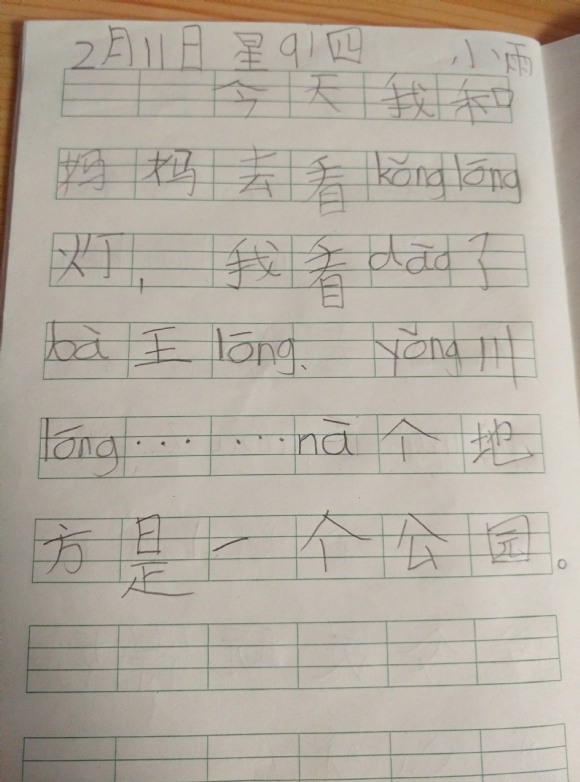 2月11日 星91四 小雨
今天我和
妈妈去看kǒng lōng
灯，我看dāo了
bà王lōng、yǒng川
lōng……nà个地
方是一个公园。